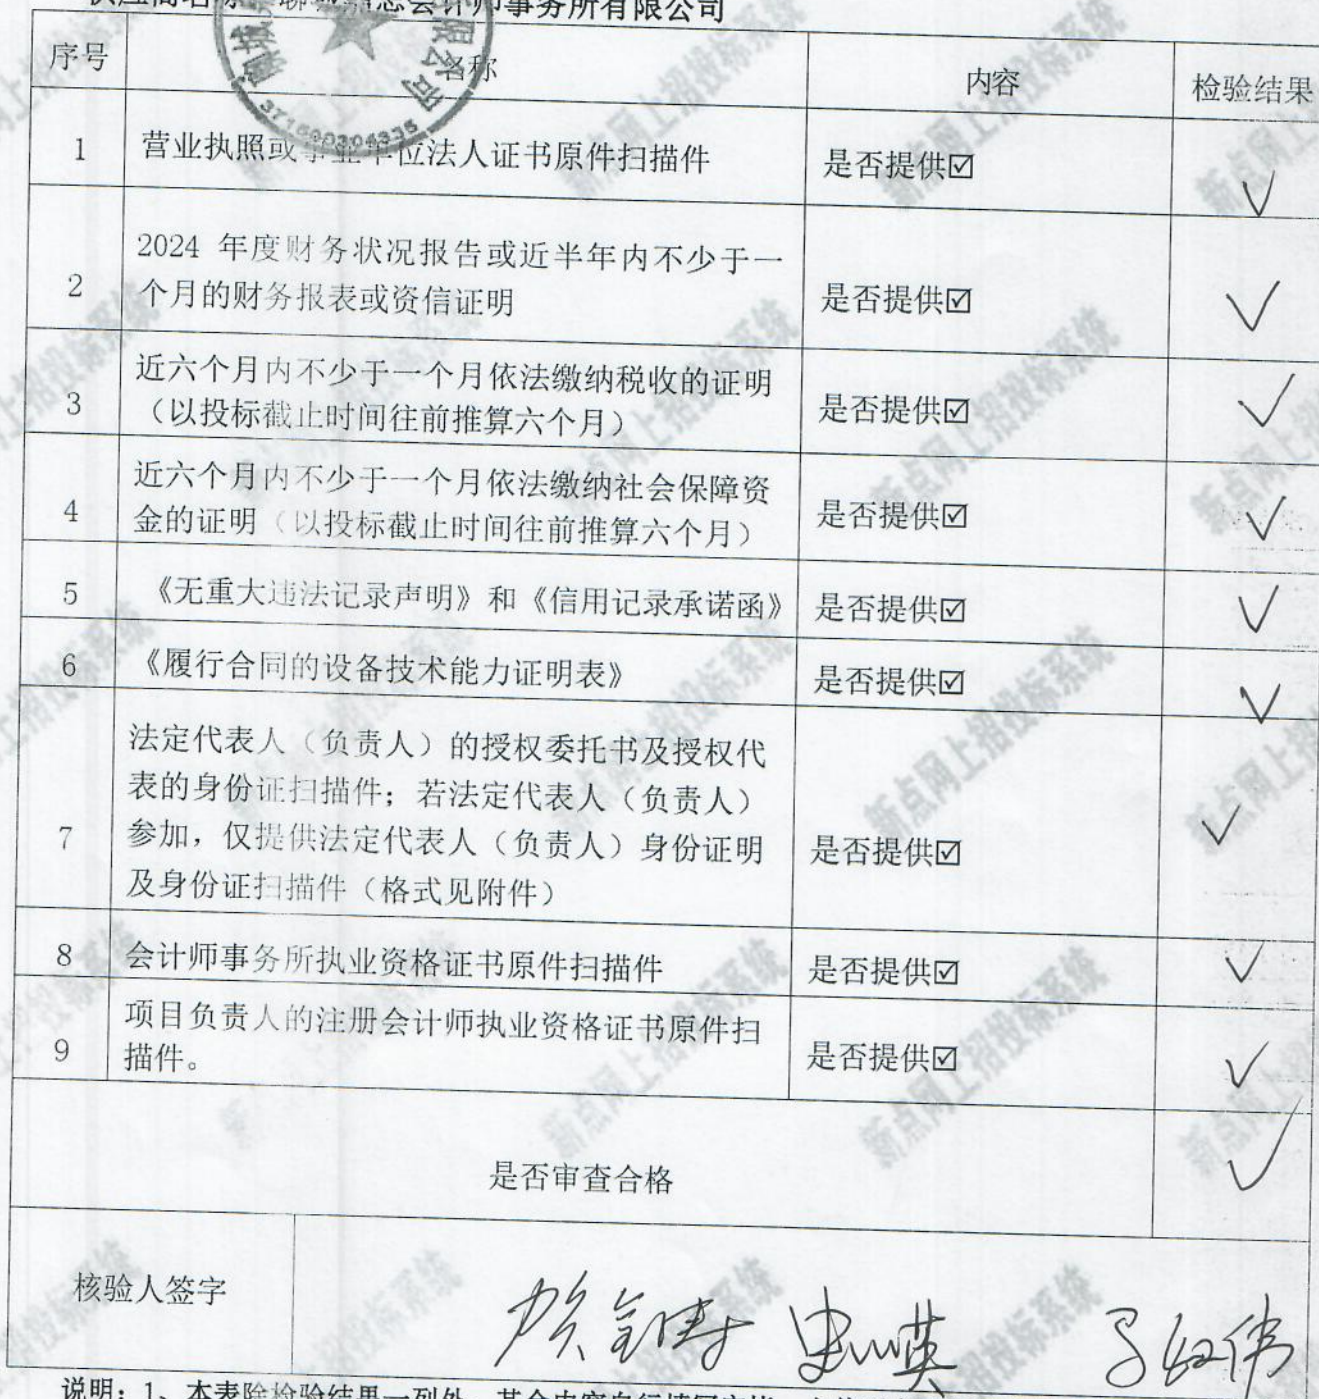 会计师事务所有限公司
序号 名称 内容 检验结果
1 营业执照或事业单位法人证书原件扫描件 是否提供☑ √
2024 年度财务状况报告或近半年内不少于一
2 个月的财务报表或资信证明 是否提供☑ √
近六个月内不少于一个月依法缴纳税收的证明
3 （以投标截止时间往前推算六个月） 是否提供☑ √
近六个月内不少于一个月依法缴纳社会保障资
4 金的证明（以投标截止时间往前推算六个月） 是否提供☑ √
5 《无重大违法记录声明》和《信用记录承诺函》 是否提供☑ √
6 《履行合同的设备技术能力证明表》 是否提供☑ √
法定代表人（负责人）的授权委托书及授权代
表的身份证扫描件；若法定代表人（负责人）
7 参加，仅提供法定代表人（负责人）身份证明 是否提供☑ √
及身份证扫描件（格式见附件）
8 会计师事务所执业资格证书原件扫描件 是否提供☑ √
项目负责人的注册会计师执业资格证书原件扫
9 描件。 是否提供☑ √
是否审查合格 √
核验人签字
说明：1、本表除检验结果一列外，其余内容自行填写完毕
新点网上招投标系统